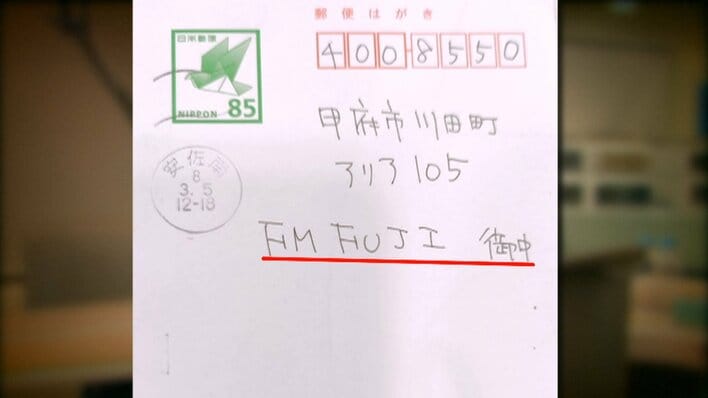 郵便はがき
日本郵便
NIPPON 85
4008550
甲府市川田町
アリア105
安佐南
8
3.5
12-18
FM FUJI 御中